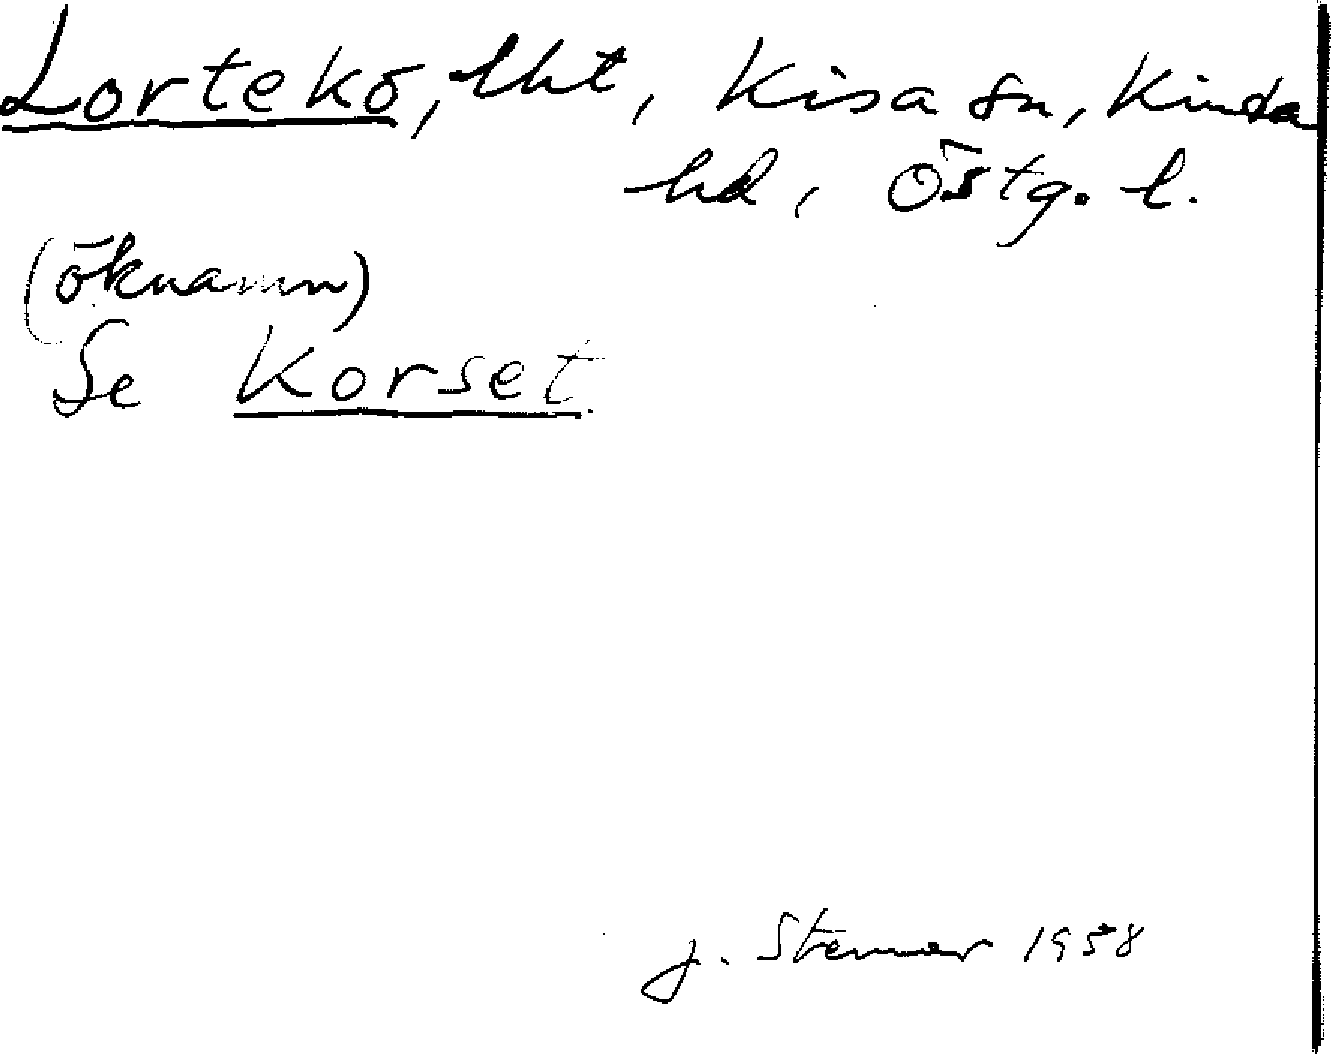 Lortekö, lht, Kisa sn, Kinda
hd, Östg. l.
(öknamn)
Se Korset.
J. Stemar 1958